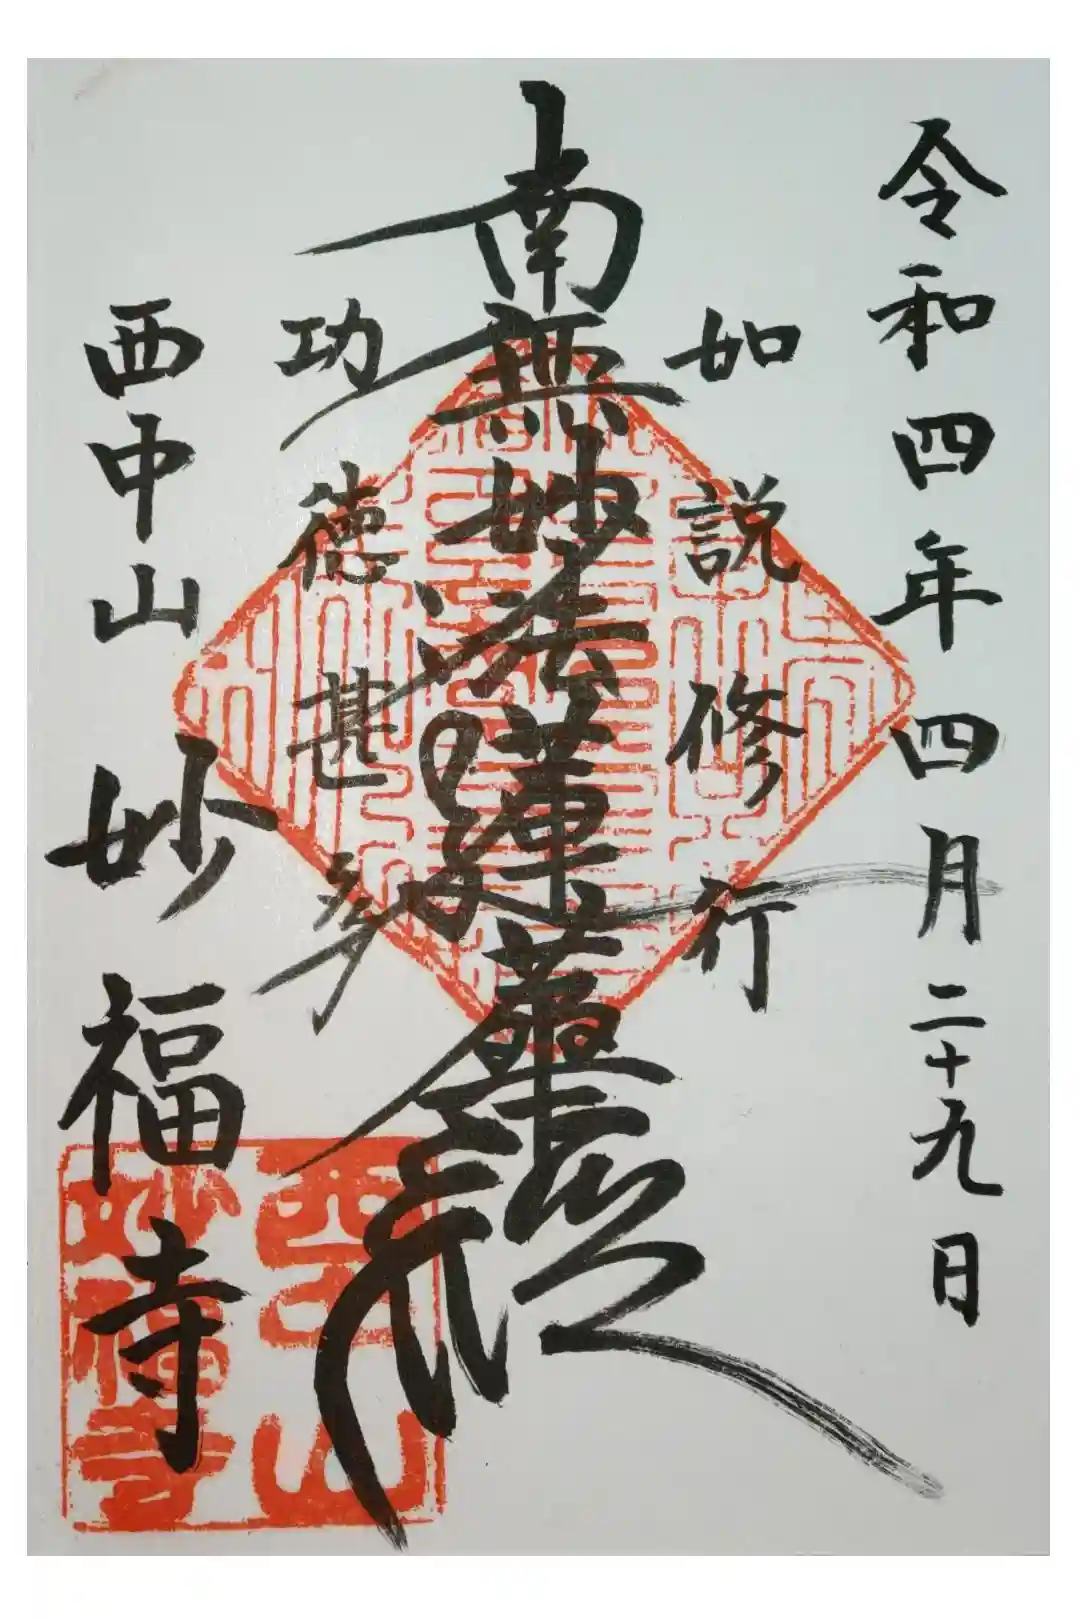 令和四年四月二十九日
如説修行
南無妙法蓮華經
功徳甚多
西中山
妙福寺
西中山
妙福寺